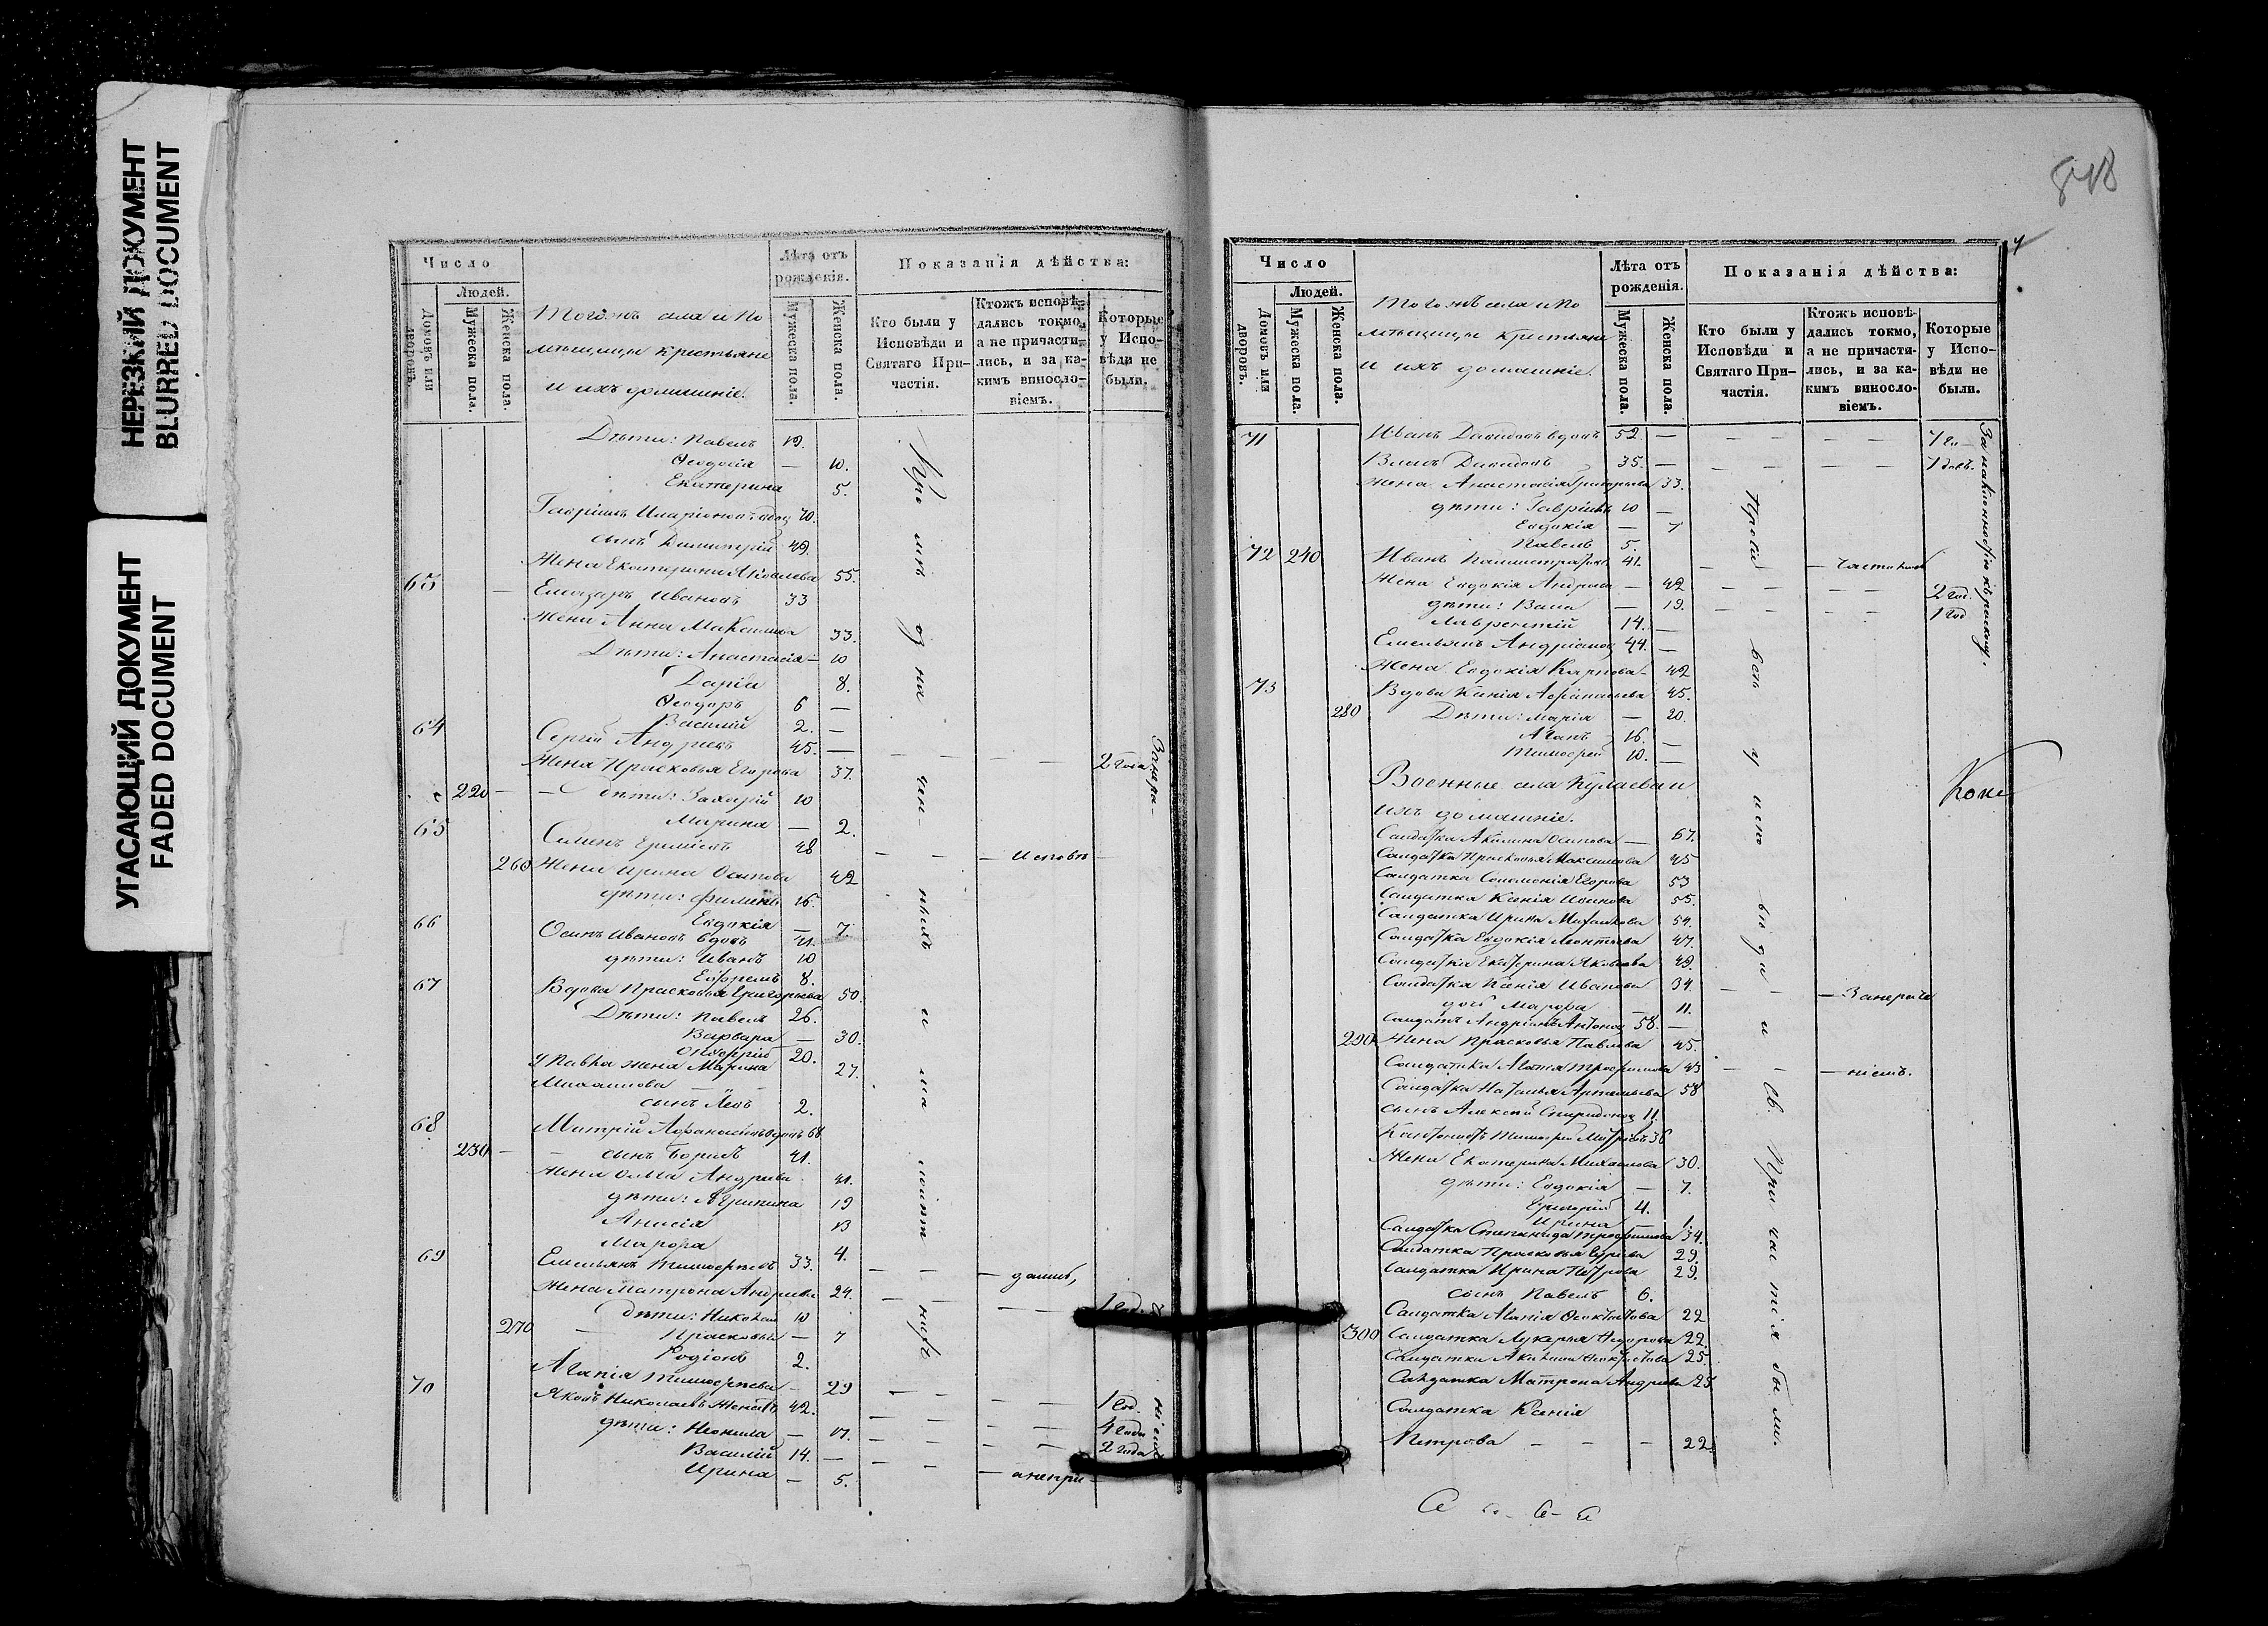 НЕРЕЗКИЙ ДОКУМЕНТ
BLURRED DOCUMENT
УГАСАЮЩИЙ ДОКУМЕНТ
FADED DOCUMENT
Число
Людей.
Домовъ или дворовъ.
Мужеска пола.
Женска пола.
Тогожъ села и по
мѣщицы крестьяне
и ихъ домашніе.
Лѣта отъ рожденія.
Мужеска пола.
Женска пола.
Показанія дѣйства:
Кто были у Исповѣди и Святаго При-
частія.
Ктожъ исповѣ-
дались токмо,
а не причасти-
лись, и за ка-
кимъ виносло-
віемъ.
Которые
у Испо-
вѣди не
были.
Дѣти: Павелъ 12.
Ѳеодосія — 10.
Екатерина 5.
Гавріилъ Иларіоновъ вдов 70.
сынъ Димитрій 49.
Жена Екатерина Яковлева 55.
63 — Елеазаръ Ивановъ 33
Жена Анна Максимова 33.
Дѣти: Анастасія — 10
Дарія 8.
Ѳеодоръ 6 —
Василій 2. —
64 Сергій Андреевъ 45. —
Жена Прасковья Егорова 37. — — 2 года
220 — дѣти: Захарій 10
Марина — 2.
65 Семенъ 48
260 Жена Ирина Осипова 42 — — исповѣ
дѣти: Филиппъ 16.
Евдокія — 7.
66 Осипъ Ивановъ вдовъ 41.
дѣти: Иванъ 10
Ефремъ 8.
67 Вдова Прасковья Григорьева 50
Дѣти: Павелъ 26.
Варвара — 30.
20.
У Павла жена Марина 27.
Михаилова
сынъ Левъ 2.
68 Митрій Афанасьевъ вдовъ 68
230 — сынъ Борисъ 41.
Жена Ольга Андреева 41.
дѣти: Агрипина 19
Анисія 13
Марфа 4.
69 Емельянъ Тимофеевъ 33. — — — дались,
Жена Матрона Андреева 24. — — 1 год.
дѣти: Николай 10
270 — Прасковья — 7
Родіонъ 2.
Агапія Тимофеева — 29
70 Яковъ Николаевъ 42. — — 1 год.
дѣти: Неонила — 17. — — 4 года
Василій 14. — — 2 года
Ирина — 5. — — а непри
848
Число
Людей.
Домовъ или дворовъ.
Мужеска пола.
Женска пола.
Тогожъ села и по
мѣщицы крестьяне
и ихъ домашніе.
Лѣта отъ рожденія.
Мужеска пола.
Женска пола.
Показанія дѣйства:
Кто были у
Исповѣди и
Святаго При-
частія.
Ктожъ исповѣ-
дались токмо,
а не причасти-
лись, и за ка-
кимъ виносло-
віемъ.
Которые
у Испо-
вѣди не
были.
71 Иванъ Давидовъ вдовъ 52. —
Власъ Давидовъ 35. —
Жена Анастасія Григорьева 33.
дѣти: Гавріилъ 10 —
Евдокія — 7
Павелъ 5.
72 240 Иванъ Калистратовъ 41. — — частились
Жена Евдокія Андреева — 42 2 год.
дѣти: Васса — 19. 1 год
Лаврентій 14. —
Емельянъ Андріановъ 44. —
Жена Евдокія Карпова — 42
73 Вдова Ксенія Афанасьева 45.
280 Дѣти: Марія — 20.
Агапъ 16. —
Тимофей 10. —
Военные села Кулаева и
ихъ домашніе.
Солдатка Акилина Осипова — 67.
Солдатка Прасковья Максимова 45
Солдатка Соломонія Егорова 53
Солдатка Ксенія Иванова 55.
Солдатка Ирина Михаилова 54.
Солдатка Евдокія Леонтьева 47.
Солдатка Екатерина Яковлева 49.
Солдатка Ксенія Иванова 34. — — — За нерачѣ
дочь Марфа — 11.
Солдатъ Андріанъ Антонов 58. —
290 Жена Прасковья Павлова 45.
Солдатка Агапія Трофимова 43 — — — ніемъ.
Солдатка Наталья Артемьева 58
сынъ Алексій Спиридонов 11
Кантонистъ Тимофей Митріевъ 36
Жена Екатерина Михаилова 30.
дѣти: Евдокія — 7.
Григорій 4.
Ирина 1.
Солдатка Степанида Трофимова 34.
Солдатка Прасковья 29.
Солдатка Ирина Петрова 29.
сынъ Павелъ 6.
Солдатка Агапія Ѳеоктистова 22
300 Солдатка Лукерья Ѳедорова 22.
Солдатка Акилина Ѳеоктистова 25.
Солдатка Матрона Андреева 25
Солдатка Ксенія
Петрова — — — 22.